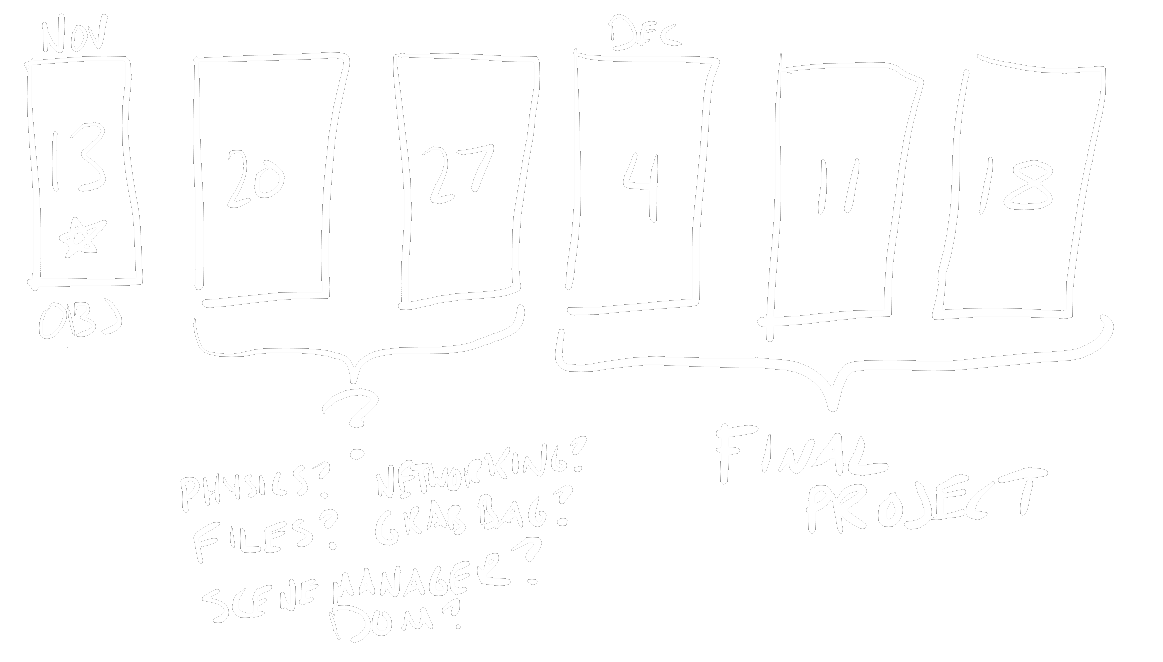 NOV
DEC
13
20
27
4
11
18
OBJ
?
PHYSICS? NETWORKING?
FILES? GRAB BAG?
SCENE MANAGER?
DOM?
FINAL
PROJECT